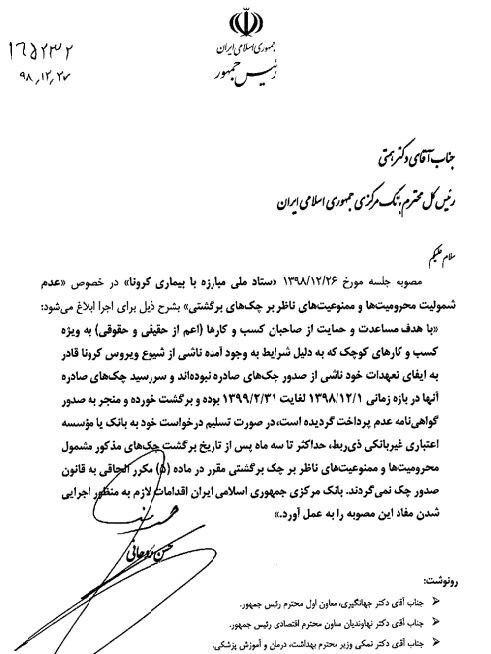 جمهوری اسلامی ایران
رئیس جمهور
۱۶۵۲۳۲
۹۸/۱۲/۲۷
جناب آقای دکتر همتی
رئیس کل محترم بانک مرکزی جمهوری اسلامی ایران
سلام علیکم
مصوبه جلسه مورخ ۱۳۹۸/۱۲/۲۶ «ستاد ملی مبارزه با بیماری کرونا» در خصوص «عدم
شمولیت محرومیت‌ها و ممنوعیت‌های ناظر بر چک‌های برگشتی» بشرح ذیل برای اجرا ابلاغ می‌شود:
«با هدف مساعدت و حمایت از صاحبان کسب و کارها (اعم از حقیقی و حقوقی) به ویژه
کسب و کارهای کوچک که به دلیل شرایط به وجود آمده ناشی از شیوع ویروس کرونا قادر به
ایفای تعهدات خود ناشی از صدور چک‌های صادره نبوده‌اند و سررسید چک‌های صادره
آنها در بازه زمانی ۱۳۹۸/۱۲/۱ لغایت ۱۳۹۹/۲/۳۱ بوده و برگشت خورده و منجر به صدور
گواهی‌نامه عدم پرداخت گردیده است، در صورت تسلیم درخواست خود به بانک یا مؤسسه
اعتباری غیربانکی ذی‌ربط، حداکثر تا سه ماه پس از تاریخ برگشت چک‌های مذکور مشمول
محرومیت‌ها و ممنوعیت‌های ناظر بر چک برگشتی مقرر در ماده (۵) مکرر الحاقی به قانون
صدور چک نمی‌گردند. بانک مرکزی جمهوری اسلامی ایران اقدامات لازم به منظور اجرایی
شدن مفاد این مصوبه را به عمل آورد.»
حسن روحانی
رونوشت:
جناب آقای دکتر جهانگیری، معاون اول محترم رئیس جمهور.
جناب آقای دکتر نهاوندیان معاون محترم اقتصادی رئیس جمهور.
جناب آقای دکتر نمکی وزیر محترم بهداشت، درمان و آموزش پزشکی.